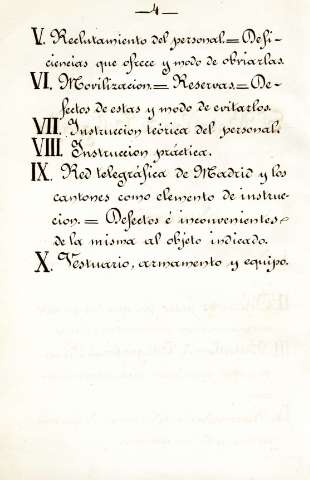 —4—
V. Reclutamiento del personal.=Defi-
ciencias que ofrece y modo de obviarlas.
VI. Movilizacion.=Reservas.=De-
fectos de estas y modo de evitarlos.
VII. Instruccion teórica del personal.
VIII. Instruccion práctica.
IX. Red telegráfica de Madrid y los
cantones como elemento de instruc-
cion.=Defectos é inconvenientes
de la misma al objeto indicado.
X. Vestuario, armamento y equipo.